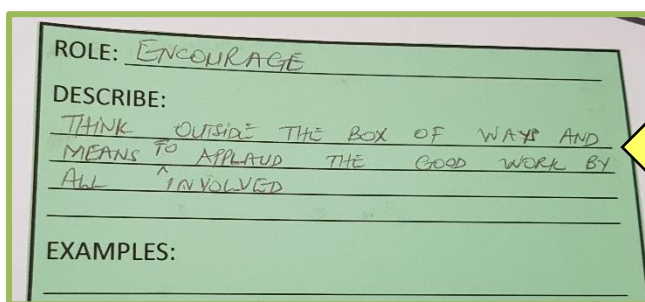 ROLE: ENCOURAGE
DESCRIBE:
THINK OUTSIDE THE BOX OF WAYS AND
MEANS TO APPLAUD THE GOOD WORK BY
ALL INVOLVED
EXAMPLES: